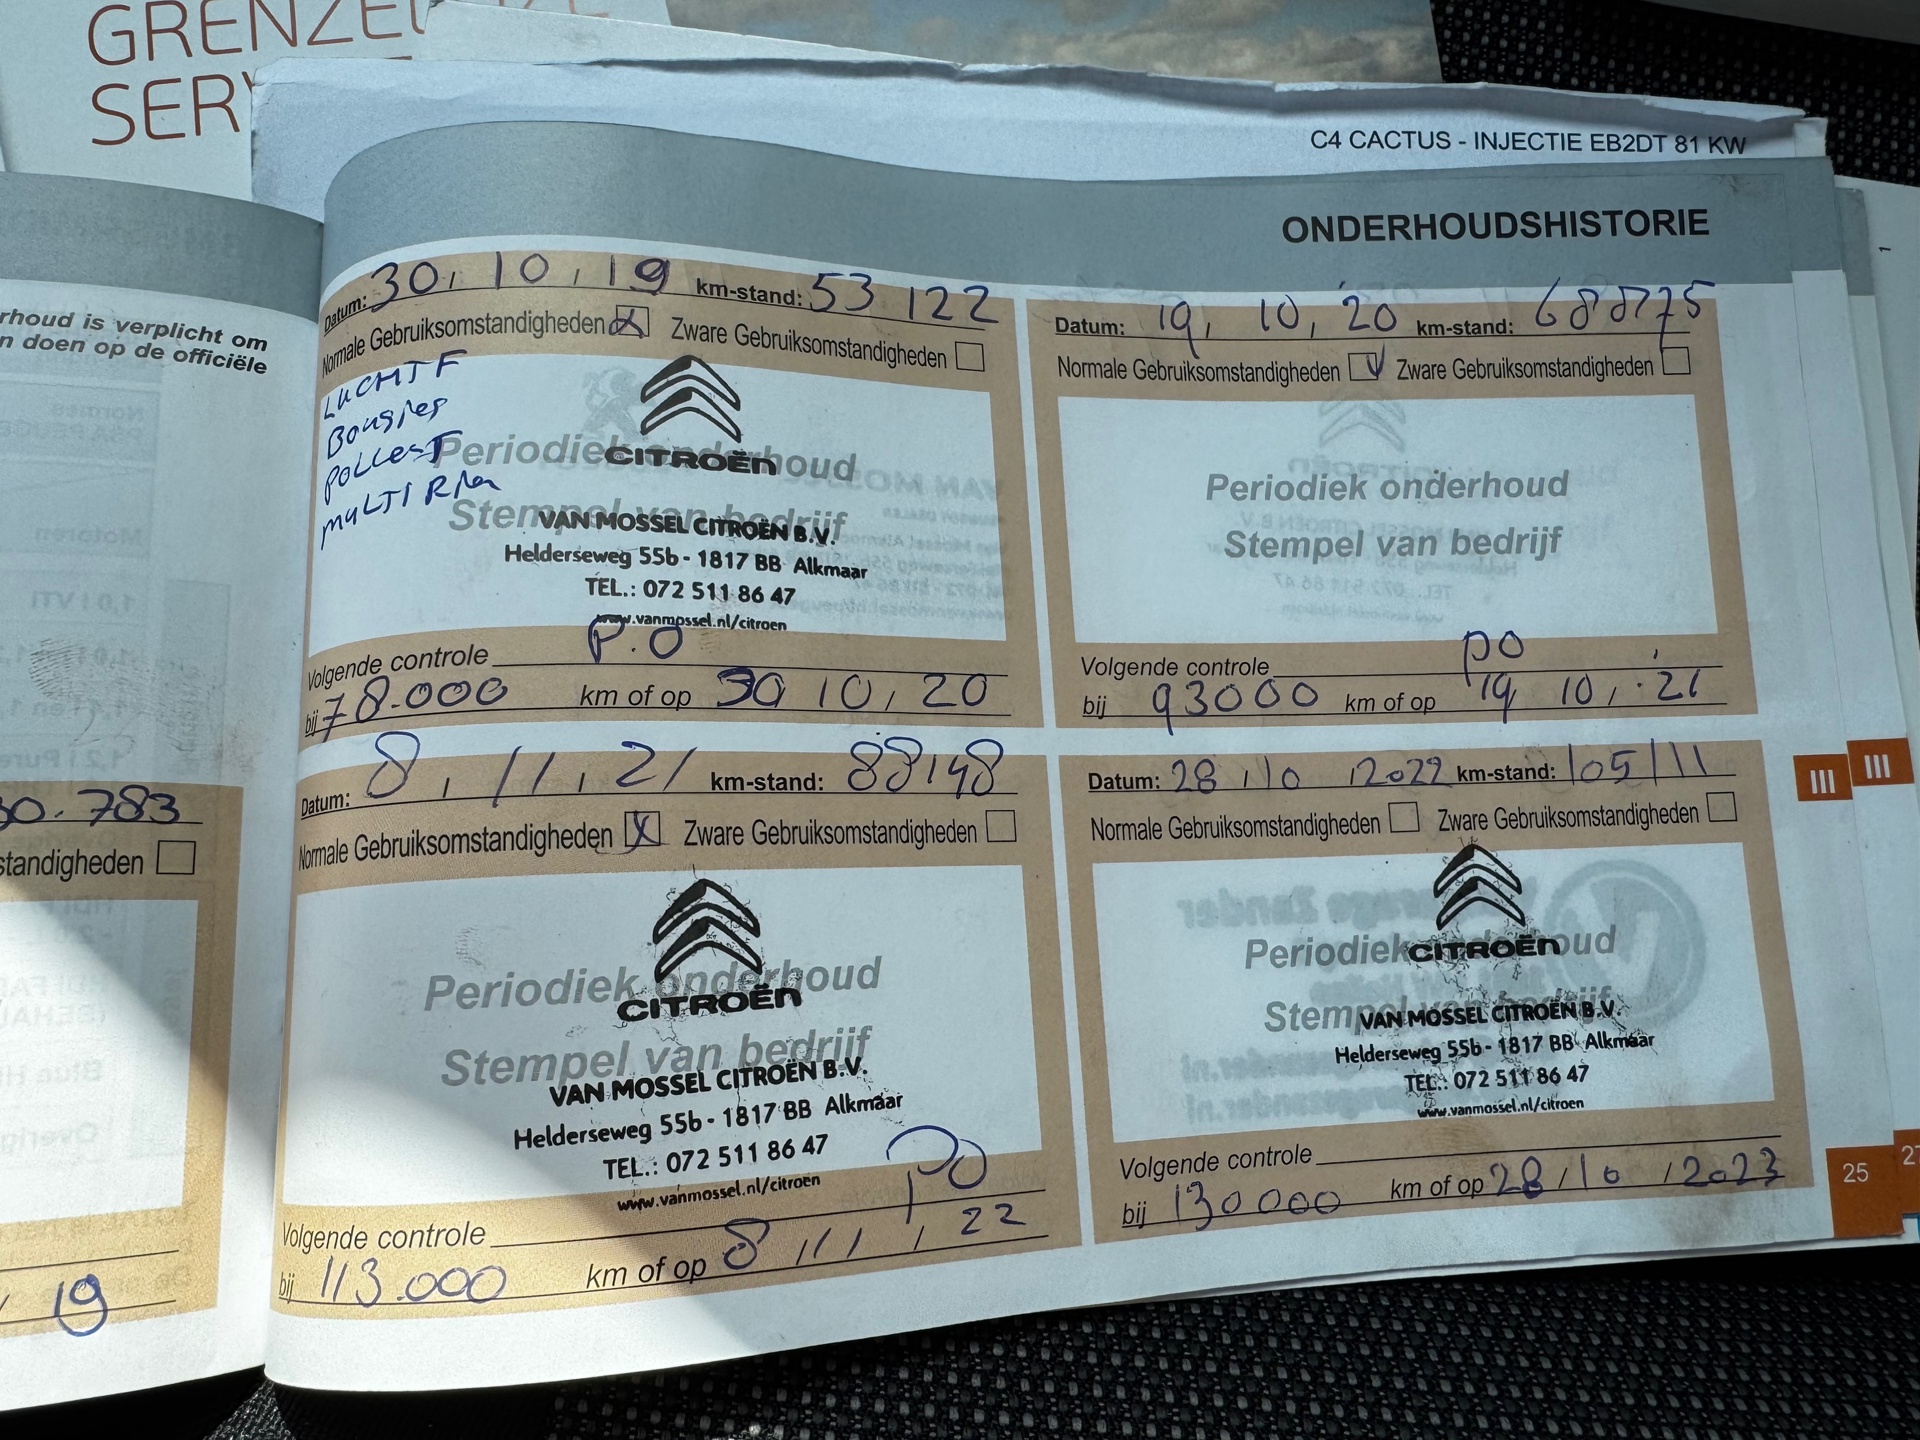 C4 CACTUS - INJECTIE EB2DT 81 KW
ONDERHOUDSHISTORIE
rhoud is verplicht om
n doen op de officiële
30.783
standigheden
19
Datum: 30, 10, 19 km-stand: 53 122
Normale Gebruiksomstandigheden X Zware Gebruiksomstandigheden
LUCHTF
Bougies
POLLENF
MULTI Riem
CITROËN
Periodiek onderhoud
Stempel van bedrijf
VAN MOSSEL CITROËN B.V.
Helderseweg 55b - 1817 BB Alkmaar
TEL.: 072 511 86 47
www.vanmossel.nl/citroen
Volgende controle P.O
bij 78.000 km of op 30 10, 20
Datum: 19, 10, 20 km-stand: 68875
Normale Gebruiksomstandigheden V Zware Gebruiksomstandigheden
Periodiek onderhoud
Stempel van bedrijf
Volgende controle PO
bij 93000 km of op 19 10, 21
Datum: 8, 11, 21 km-stand: 88148
Normale Gebruiksomstandigheden X Zware Gebruiksomstandigheden
Periodiek onderhoud
CITROËN
Stempel van bedrijf
VAN MOSSEL CITROËN B.V.
Helderseweg 55b - 1817 BB Alkmaar
TEL.: 072 511 86 47
www.vanmossel.nl/citroen
Volgende controle PO
bij 113.000 km of op 8, 11, 22
Datum: 28, 10, 2022 km-stand: 105111
Normale Gebruiksomstandigheden Zware Gebruiksomstandigheden
Periodiek onderhoud
CITROËN
Stempel van bedrijf
VAN MOSSEL CITROËN B.V.
Helderseweg 55b - 1817 BB Alkmaar
TEL.: 072 511 86 47
www.vanmossel.nl/citroen
Volgende controle
bij 130000 km of op 28, 10, 2023
III
III
25
27
1